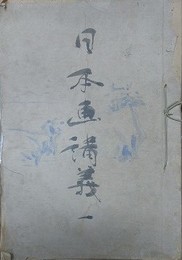 日本画講義一